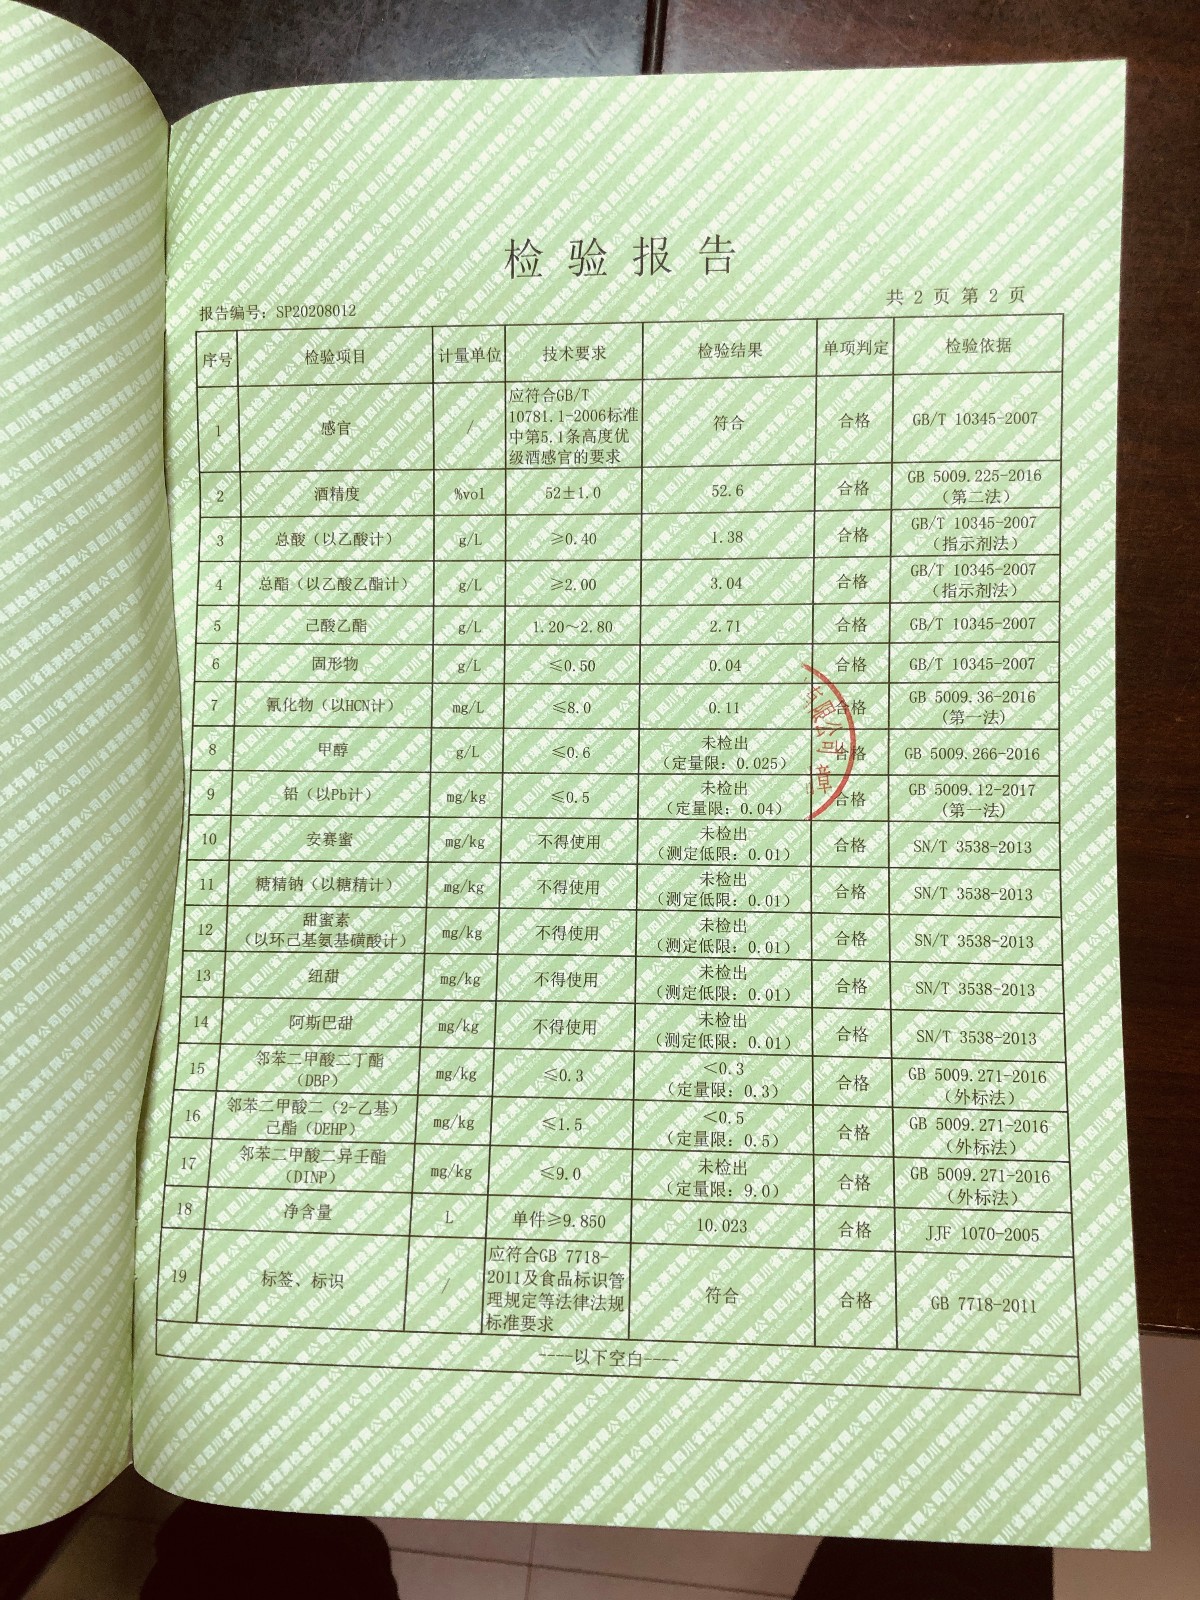 检验报告
报告编号：SP20208012
共 2 页 第 2 页
序号 检验项目 计量单位 技术要求 检验结果 单项判定 检验依据
1 感官 / 应符合GB/T 10781.1-2006标准中第5.1条高度优级酒感官的要求 符合 合格 GB/T 10345-2007
2 酒精度 %vol 52±1.0 52.6 合格 GB 5009.225-2016（第二法）
3 总酸（以乙酸计） g/L ≥0.40 1.38 合格 GB/T 10345-2007（指示剂法）
4 总酯（以乙酸乙酯计） g/L ≥2.00 3.04 合格 GB/T 10345-2007（指示剂法）
5 己酸乙酯 g/L 1.20～2.80 2.71 合格 GB/T 10345-2007
6 固形物 g/L ≤0.50 0.04 合格 GB/T 10345-2007
7 氰化物（以HCN计） mg/L ≤8.0 0.11 合格 GB 5009.36-2016（第一法）
8 甲醇 g/L ≤0.6 未检出（定量限：0.025） 合格 GB 5009.266-2016
9 铅（以Pb计） mg/kg ≤0.5 未检出（定量限：0.04） 合格 GB 5009.12-2017（第一法）
10 安赛蜜 mg/kg 不得使用 未检出（测定低限：0.01） 合格 SN/T 3538-2013
11 糖精钠（以糖精计） mg/kg 不得使用 未检出（测定低限：0.01） 合格 SN/T 3538-2013
12 甜蜜素（以环己基氨基磺酸计） mg/kg 不得使用 未检出（测定低限：0.01） 合格 SN/T 3538-2013
13 纽甜 mg/kg 不得使用 未检出（测定低限：0.01） 合格 SN/T 3538-2013
14 阿斯巴甜 mg/kg 不得使用 未检出（测定低限：0.01） 合格 SN/T 3538-2013
15 邻苯二甲酸二丁酯（DBP） mg/kg ≤0.3 <0.3（定量限：0.3） 合格 GB 5009.271-2016（外标法）
16 邻苯二甲酸二（2-乙基）己酯（DEHP） mg/kg ≤1.5 <0.5（定量限：0.5） 合格 GB 5009.271-2016（外标法）
17 邻苯二甲酸二异壬酯（DINP） mg/kg ≤9.0 未检出（定量限：9.0） 合格 GB 5009.271-2016（外标法）
18 净含量 L 单件≥9.850 10.023 合格 JJF 1070-2005
19 标签、标识 / 应符合GB 7718-2011及食品标识管理规定等法律法规标准要求 符合 合格 GB 7718-2011
----以下空白----
限公司
章